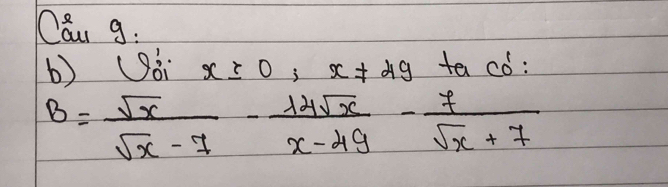 Câu 9:
b) Với x ≥ 0 ; x ≠ 49 ta có:
B = √x / (√x - 7) - 14√x / (x - 49) - 7 / (√x + 7)